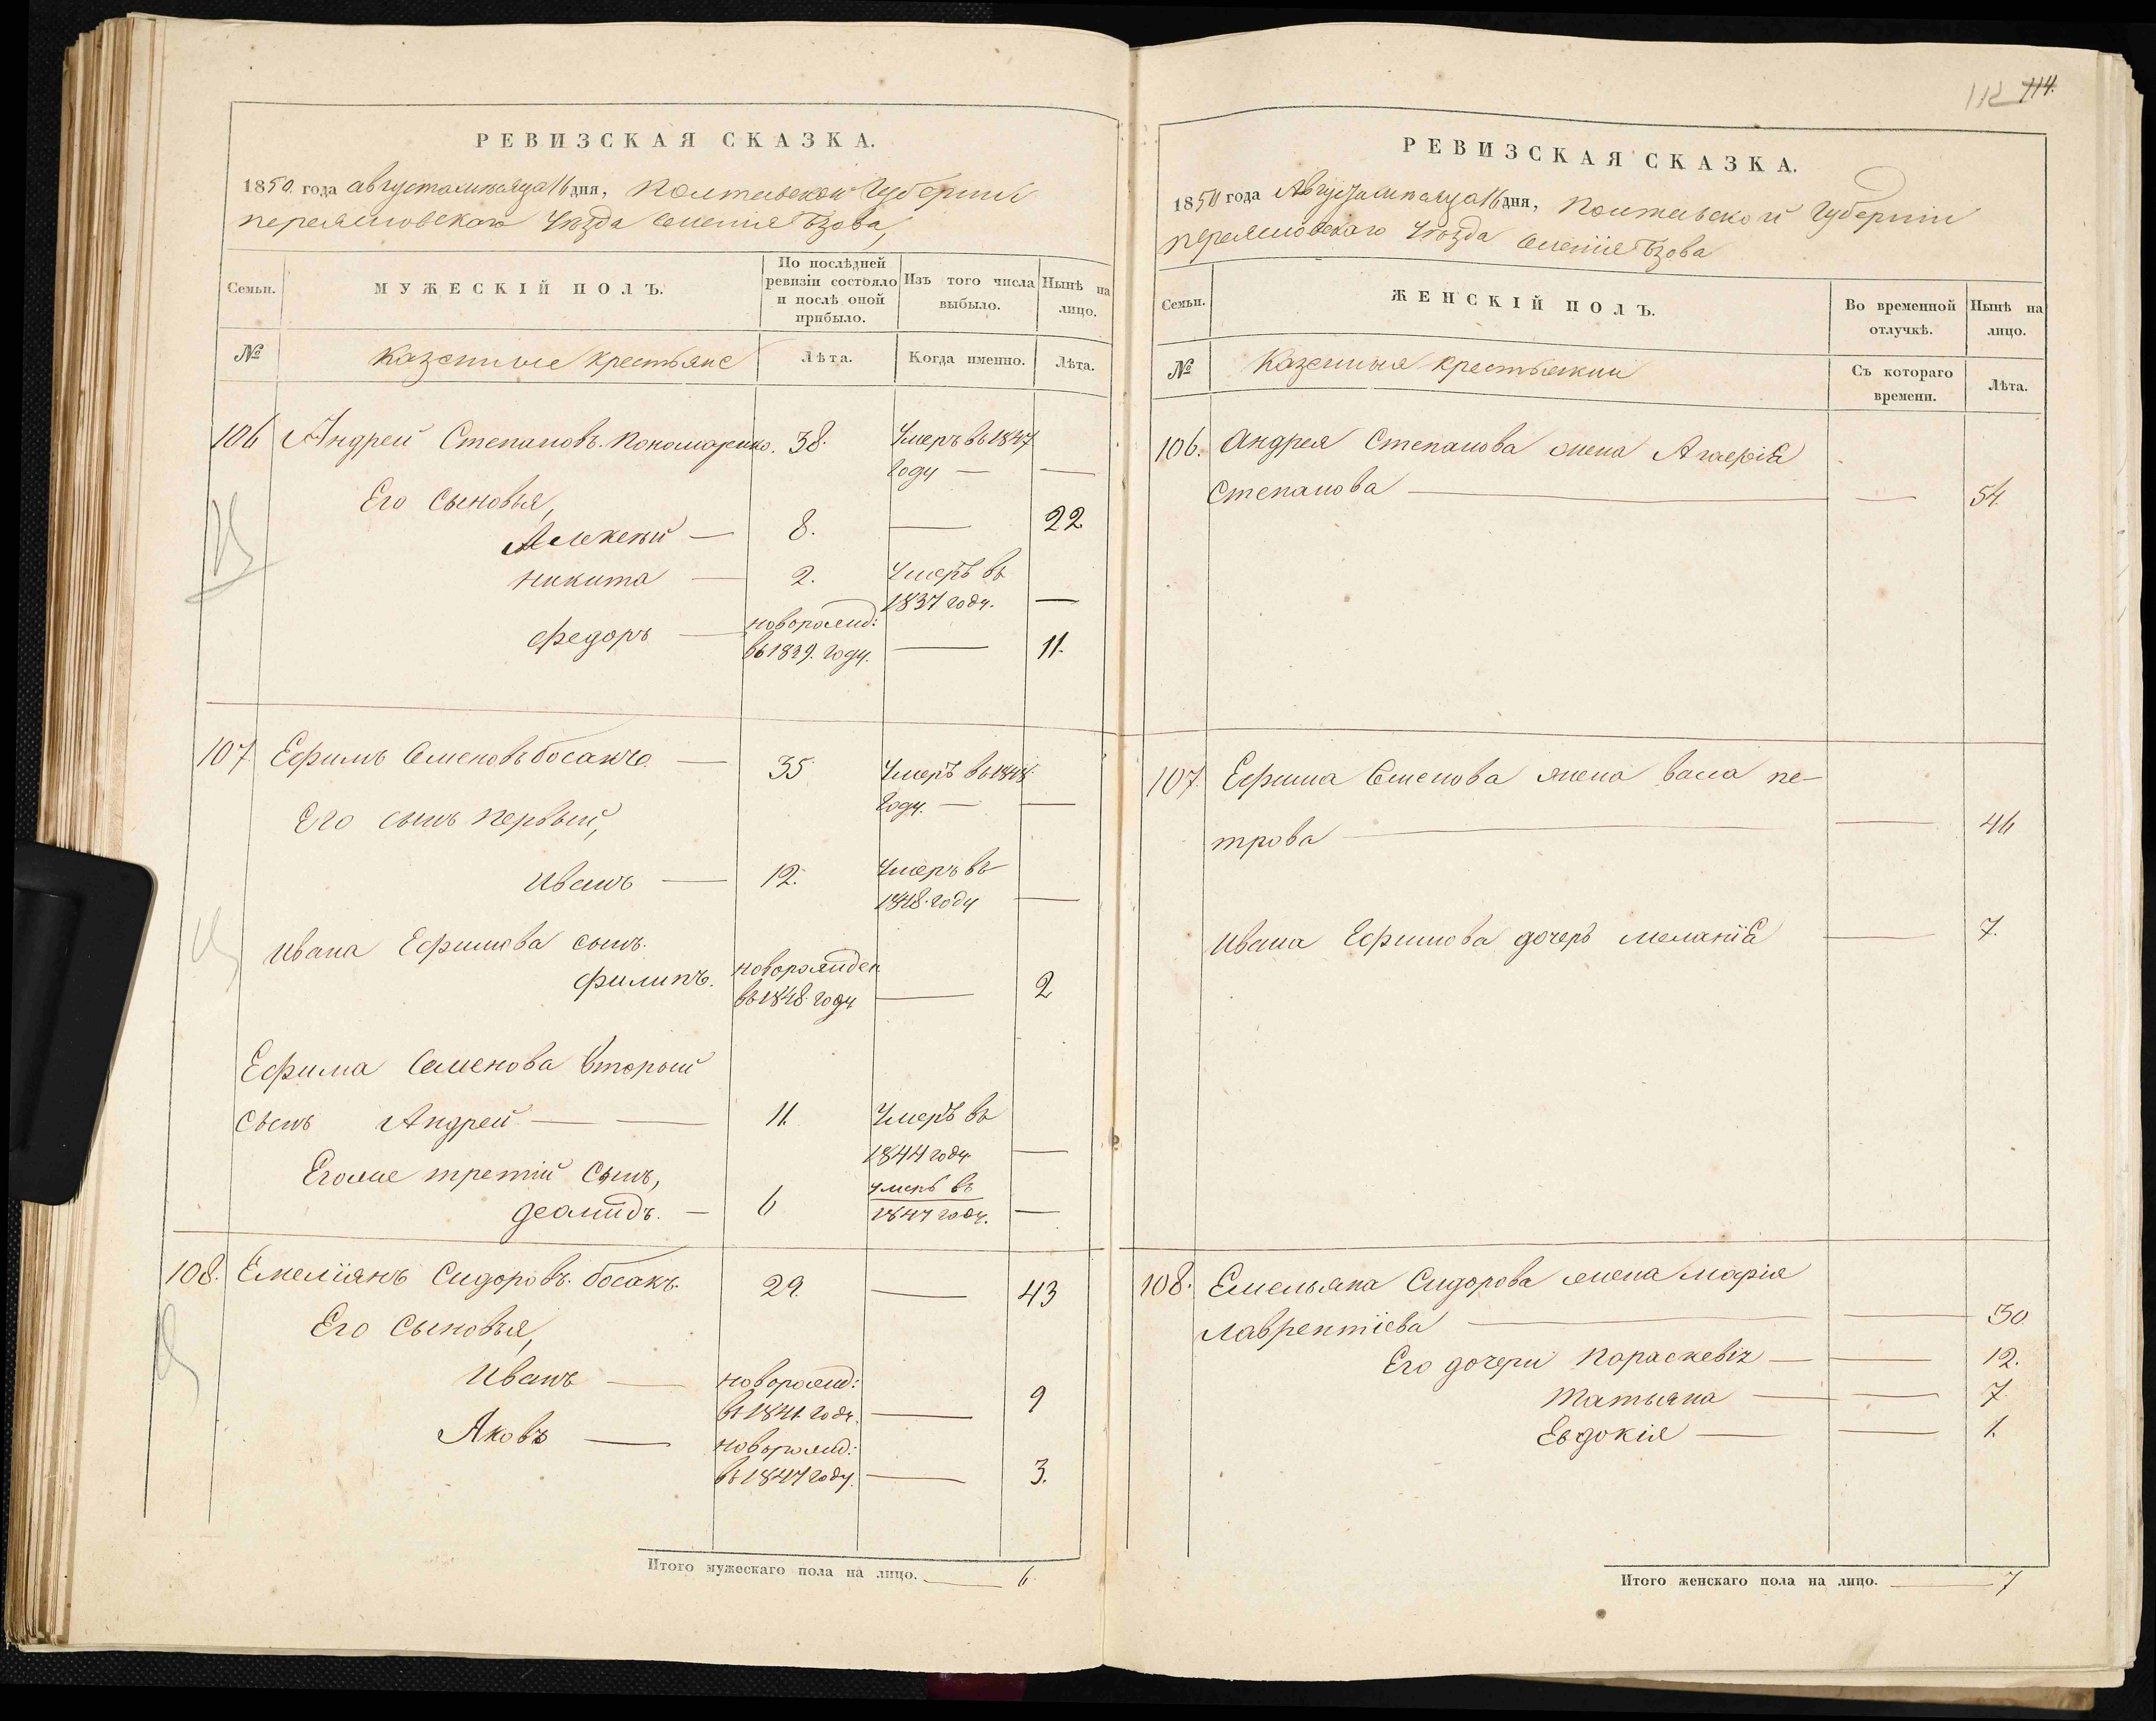 РЕВИЗСКАЯ СКАЗКА.
1850. года августа месяца 16 дня, Полтавской Губернии
переяславского Уѣзда селения Бзова,
Семьи.
МУЖЕСКІЙ ПОЛЪ.
По послѣдней ревизіи состояло и послѣ оной прибыло.
Изъ того числа выбыло.
Нынѣ на лицо.
№
казенные крестьяне
Лѣта.
Когда именно.
Лѣта.
106 Андрей Степановъ Пономаренко. 38. Умеръ въ 1847
году — —
Его сыновья,
Алексѣй — 8. — 22
никита — 2. Умеръ въ
1837 году. —
федоръ — новорожд:
въ 1839. году. — 11.
107. Ефимъ Семеновъ босакъ. — 35 Умеръ въ 1848.
году. — —
Его сынъ первый,
Иванъ — 12. Умеръ въ
1848. году —
Ивана Ефимова сынъ.
филипъ. новорожден
въ 1848. году — 2
Ефима Семенова второй
сынъ Андрей — — 11. Умеръ въ
1844 году —
Егоже третій сынъ,
демидъ. — 6 умеръ въ
1847 году. —
108. Емеліянъ Сидоровъ. босакъ. 29. — 43
Его сыновья,
Иванъ — новорожд:
въ 1841. году. — 9
Яковъ — новорожд:
въ 1847 году. — 3.
Итого мужескаго пола на лицо. — 6.
112 114.
РЕВИЗСКАЯ СКАЗКА.
1850 года Августа месяца 16 дня, Полтавской Губерніи
переяславскаго Уѣзда селенія Бзова
Семьи.
ЖЕНСКІЙ ПОЛЪ.
Во временной отлучкѣ.
Нынѣ на лицо.
№
Казенныя крестьянки
Съ котораго времени.
Лѣта.
106. Андрея Степанова жена
Степанова — — 54.
107. Ефима Семенова жена васа пе-
трова — — 46
Ивана Ефимова дочерь меланія — 7.
108. Емельяна Сидорова жена марія
Лаврентіева — — 30
Его дочери Параскевія — — 12.
Татьяна — — 7.
Евдокія — — 1.
Итого женскаго пола на лицо. — 7